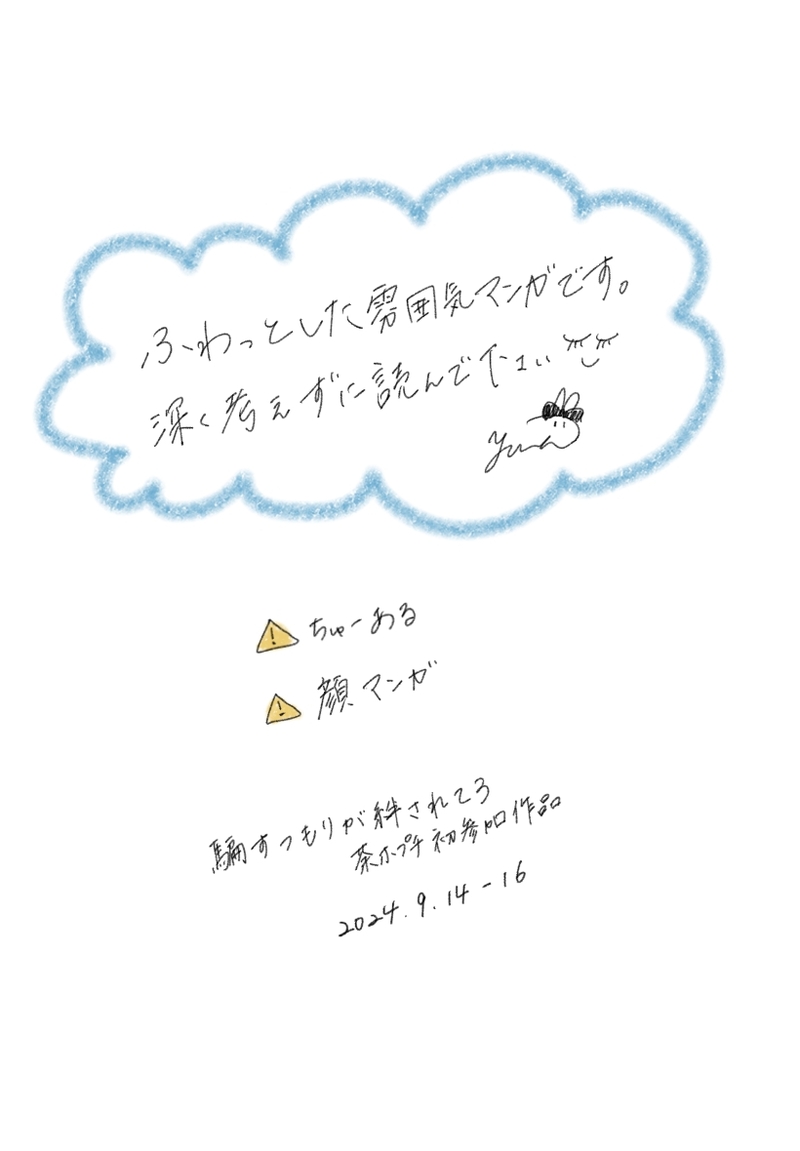 ふわっとした雰囲気マンガです。
深く考えずに読んで下さい
yuna
⚠ ちゅーある
⚠ 顔マンガ
騙すつもりが絆されてろ
茶ホプチ初参加作品
2024.9.14-16